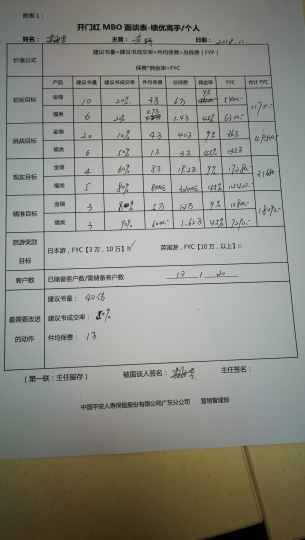 附表1：
开门红 MBO 面谈表-绩优高手/个人
姓名： 主管： 日期：2018.11
价值公式 建议书量*建议书成交率*件均保费=总保费（FYP）
保费*佣金率=FYC
产品 建议书量 建议书成交率 件均保费 总保费 佣金率 FYC 合计 FYC
初级目标 金瑞 10 20% 3万 6万 9% 5400.- 11700.-
福类 6 45% 6300.-
挑战目标 金瑞 20 10% 9%
福类 6 50% 1万 3万 45%
现实目标 金瑞 4 60% 8万 9% 17280.- 31680.-
福类 5 80% 8000
精准目标 金瑞 3 80% 5万 12万 9% 10800.- 18090.-
福类 3 90% 6000.- 1.62万 45% 7290.-
旅游奖励目标 日本游，FYC【3 万，10 万】☑ 英国游，FYC【10 万，以上】□
客户数 已储备客户数/需储备客户数 10 / 20
最需要改进的动作 建议书量：40份
建议书成交率：80%
件均保费：1万
（第一联：主任留存） 被面谈人签名： 主任签名：
中国平安人寿保险股份有限公司广东分公司 营销管理部